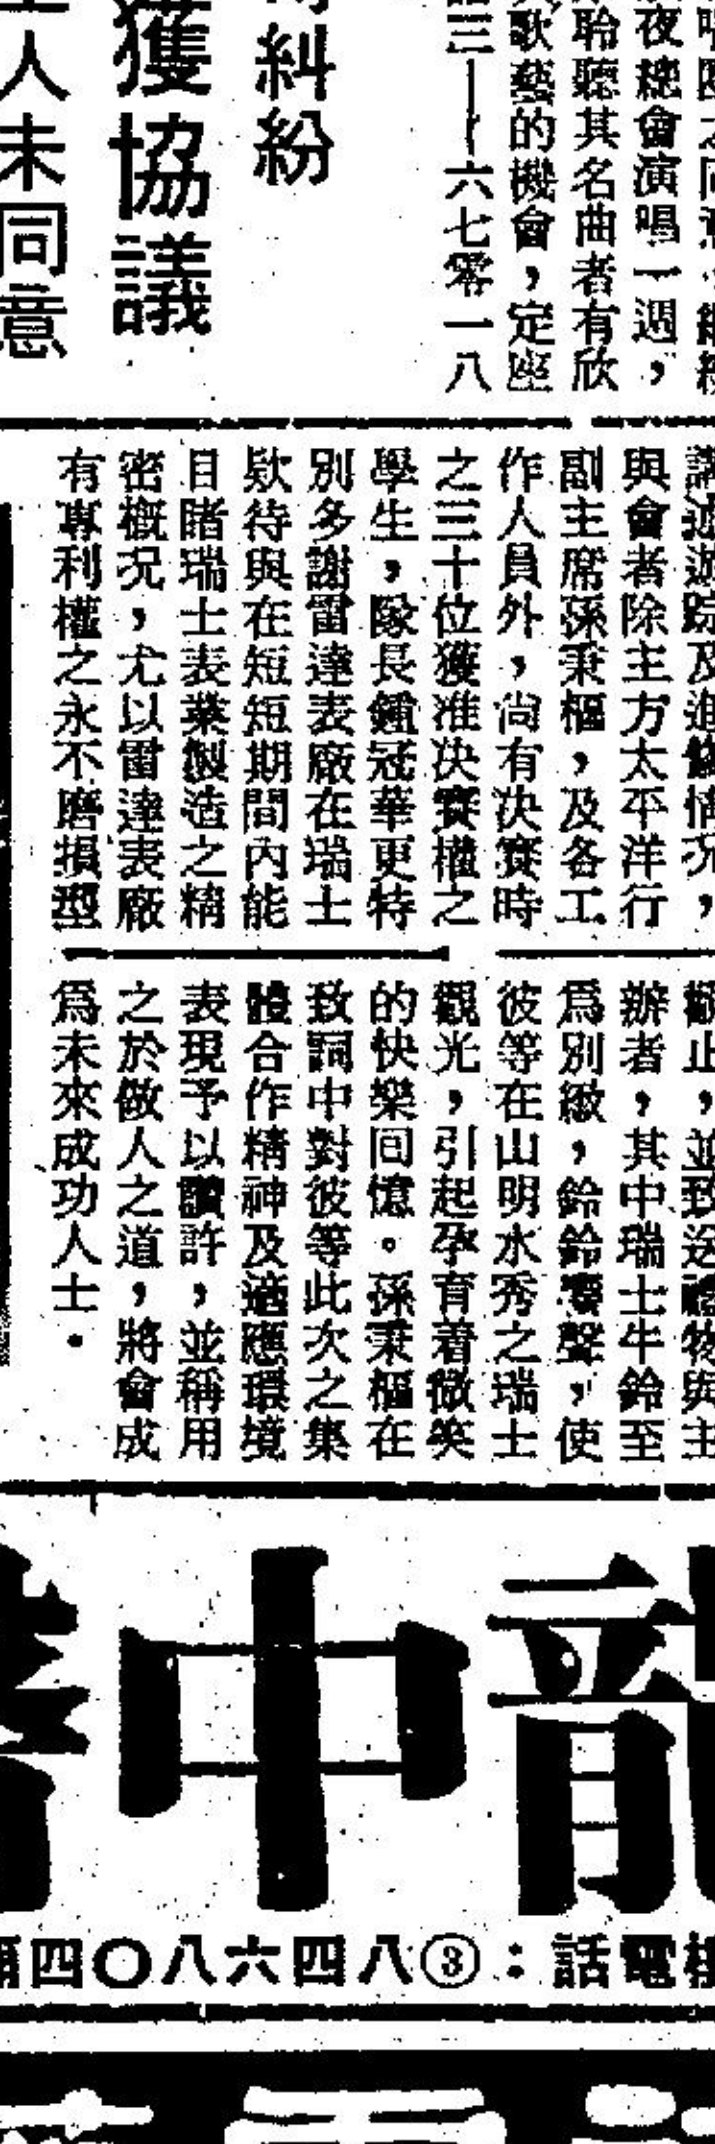 夜總會演唱一週，
聆聽其名曲者有欣
歌藝的機會，定座
話三—六七零一八
糾紛
獲協議
人未同意
講述遊踪及進修情況，
與會者除主方太平洋行
副主席孫秉樞，及各工
作人員外，尚有決賽時
之三十位獲准決賽權之
學生，隊長鍾冠華更特
別多謝雷達表廠在瑞士
欵待與在短短期間內能
目睹瑞士表業製造之精
密概況，尤以雷達表廠
有專利權之永不磨損型
觀止，並致送禮物與主
辦者，其中瑞士牛鈴至
爲別緻，鈴鈴響聲，使
彼等在山明水秀之瑞士
觀光，引起孕育着微笑
的快樂回憶。孫秉樞在
致詞中對彼等此次之集
體合作精神及適應環境
表現予以讚許，並稱用
之於做人之道，將會成
爲未來成功人士。
龍中
電話：③八四六八〇四